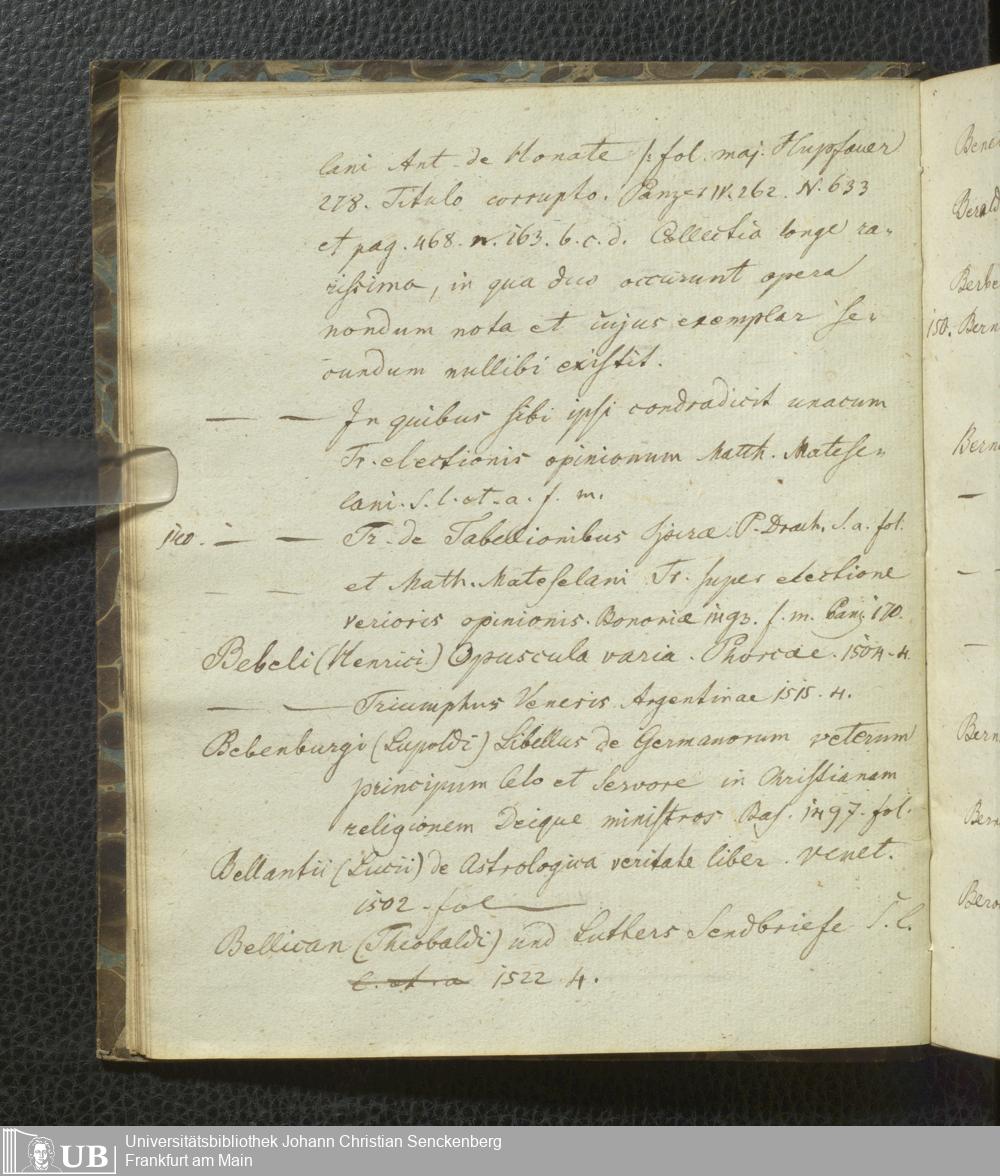 lani Ant. de Honate /: fol. maj. Hupfauer
278. Titulo corrupto. Panzer IV. 262. N. 633
et pag. 468. n. 163. b. c. d. Collectio longe ra-
rissima, in qua duo occurunt opera
nondum nota et cujus exemplar se-
cundum nullibi existit.
— — In quibus sibi ipsi condradicit unacum
Tr. electionis opinionum Matth. Matese-
lani. S. l. et. a. f. m.
140. — — Tr. de Tabellionibus Spirae. P. Drach. S. a. fol.
— — et Math. Mateselani Tr. super electione
verioris opinionis. Bononiae 1493. f. m. Panz. 170.
Bebeli (Henrici) Opuscula varia. Phorcae. 1504. 4.
— — Triumphus Veneris Argentinae 1515. 4.
Bebenburgi (Lupoldi) Libellus de Germanorum veterum
principum Celo et Servore in Christianam
religionem Deique ministros Bas. 1497. fol.
Bellantii (Lucii) de Astrologica veritate liber. Venet.
1502. fol
Bellican (Theobaldi) und Luthers Sendbriefe S. l.
l. et. a 1522 4.
Bene
Berald
Berbe
150. Bern
Bern
—
— —
—
Bern
Bern
Bero
UB Universitätsbibliothek Johann Christian Senckenberg
Frankfurt am Main